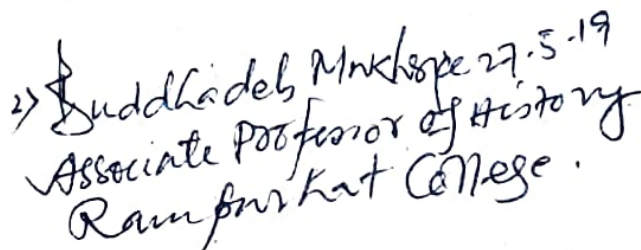 2) Buddhadeb Mukhope 27.5.19
Associate Professor of History
Rampurhat College.